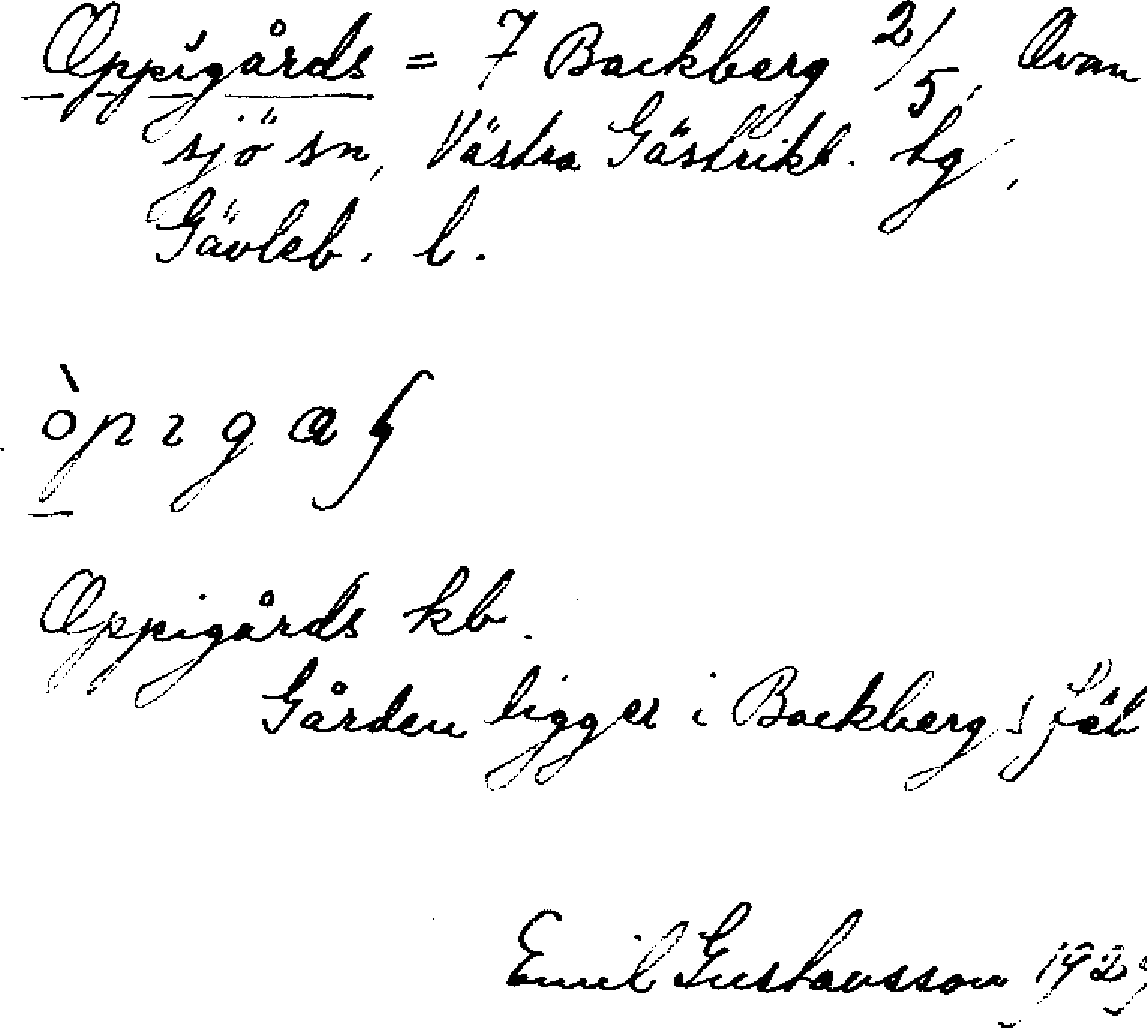 Oppigårds = 7 Backberg 2/5, Ovan
sjö sn, Västra Gästrikl. tg,
Gävleb. l.
òpıgaʂ
Oppigårds kb.
Gården ligger i Backbergs fäb
Emil Gustavsson